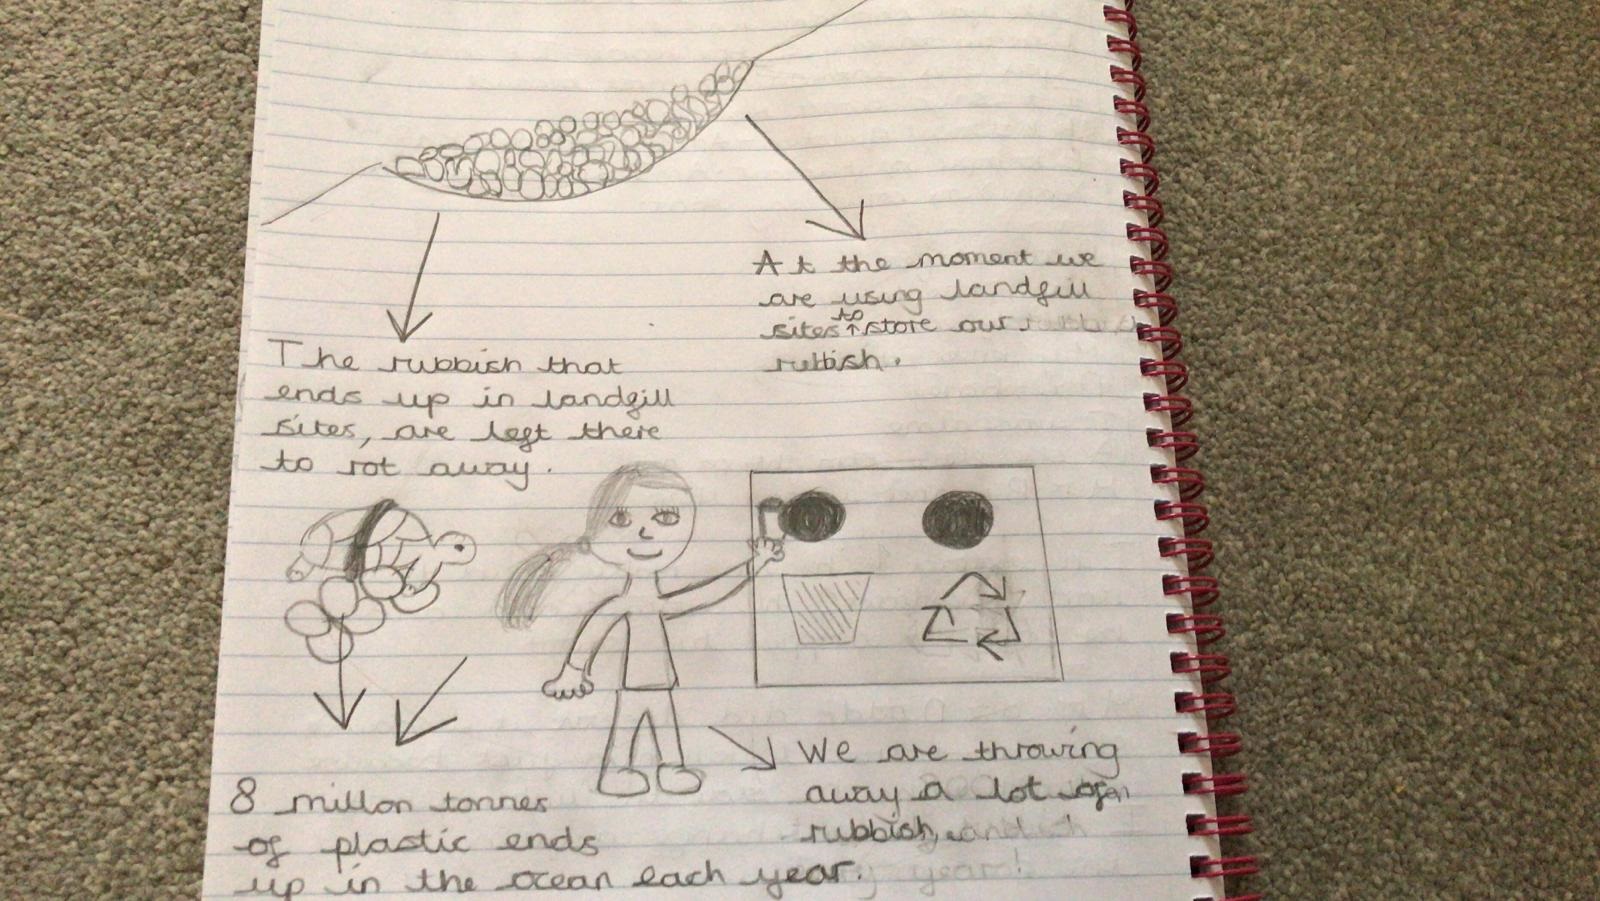 At the moment we
are using landfill
sites ↑ store our
to
rubbish.
The rubbish that
ends up in landfill
sites, are left there
to rot away.
8 millon tonnes
of plastic ends
up in the ocean each year.
We are throwing
away a lot of
rubbish,